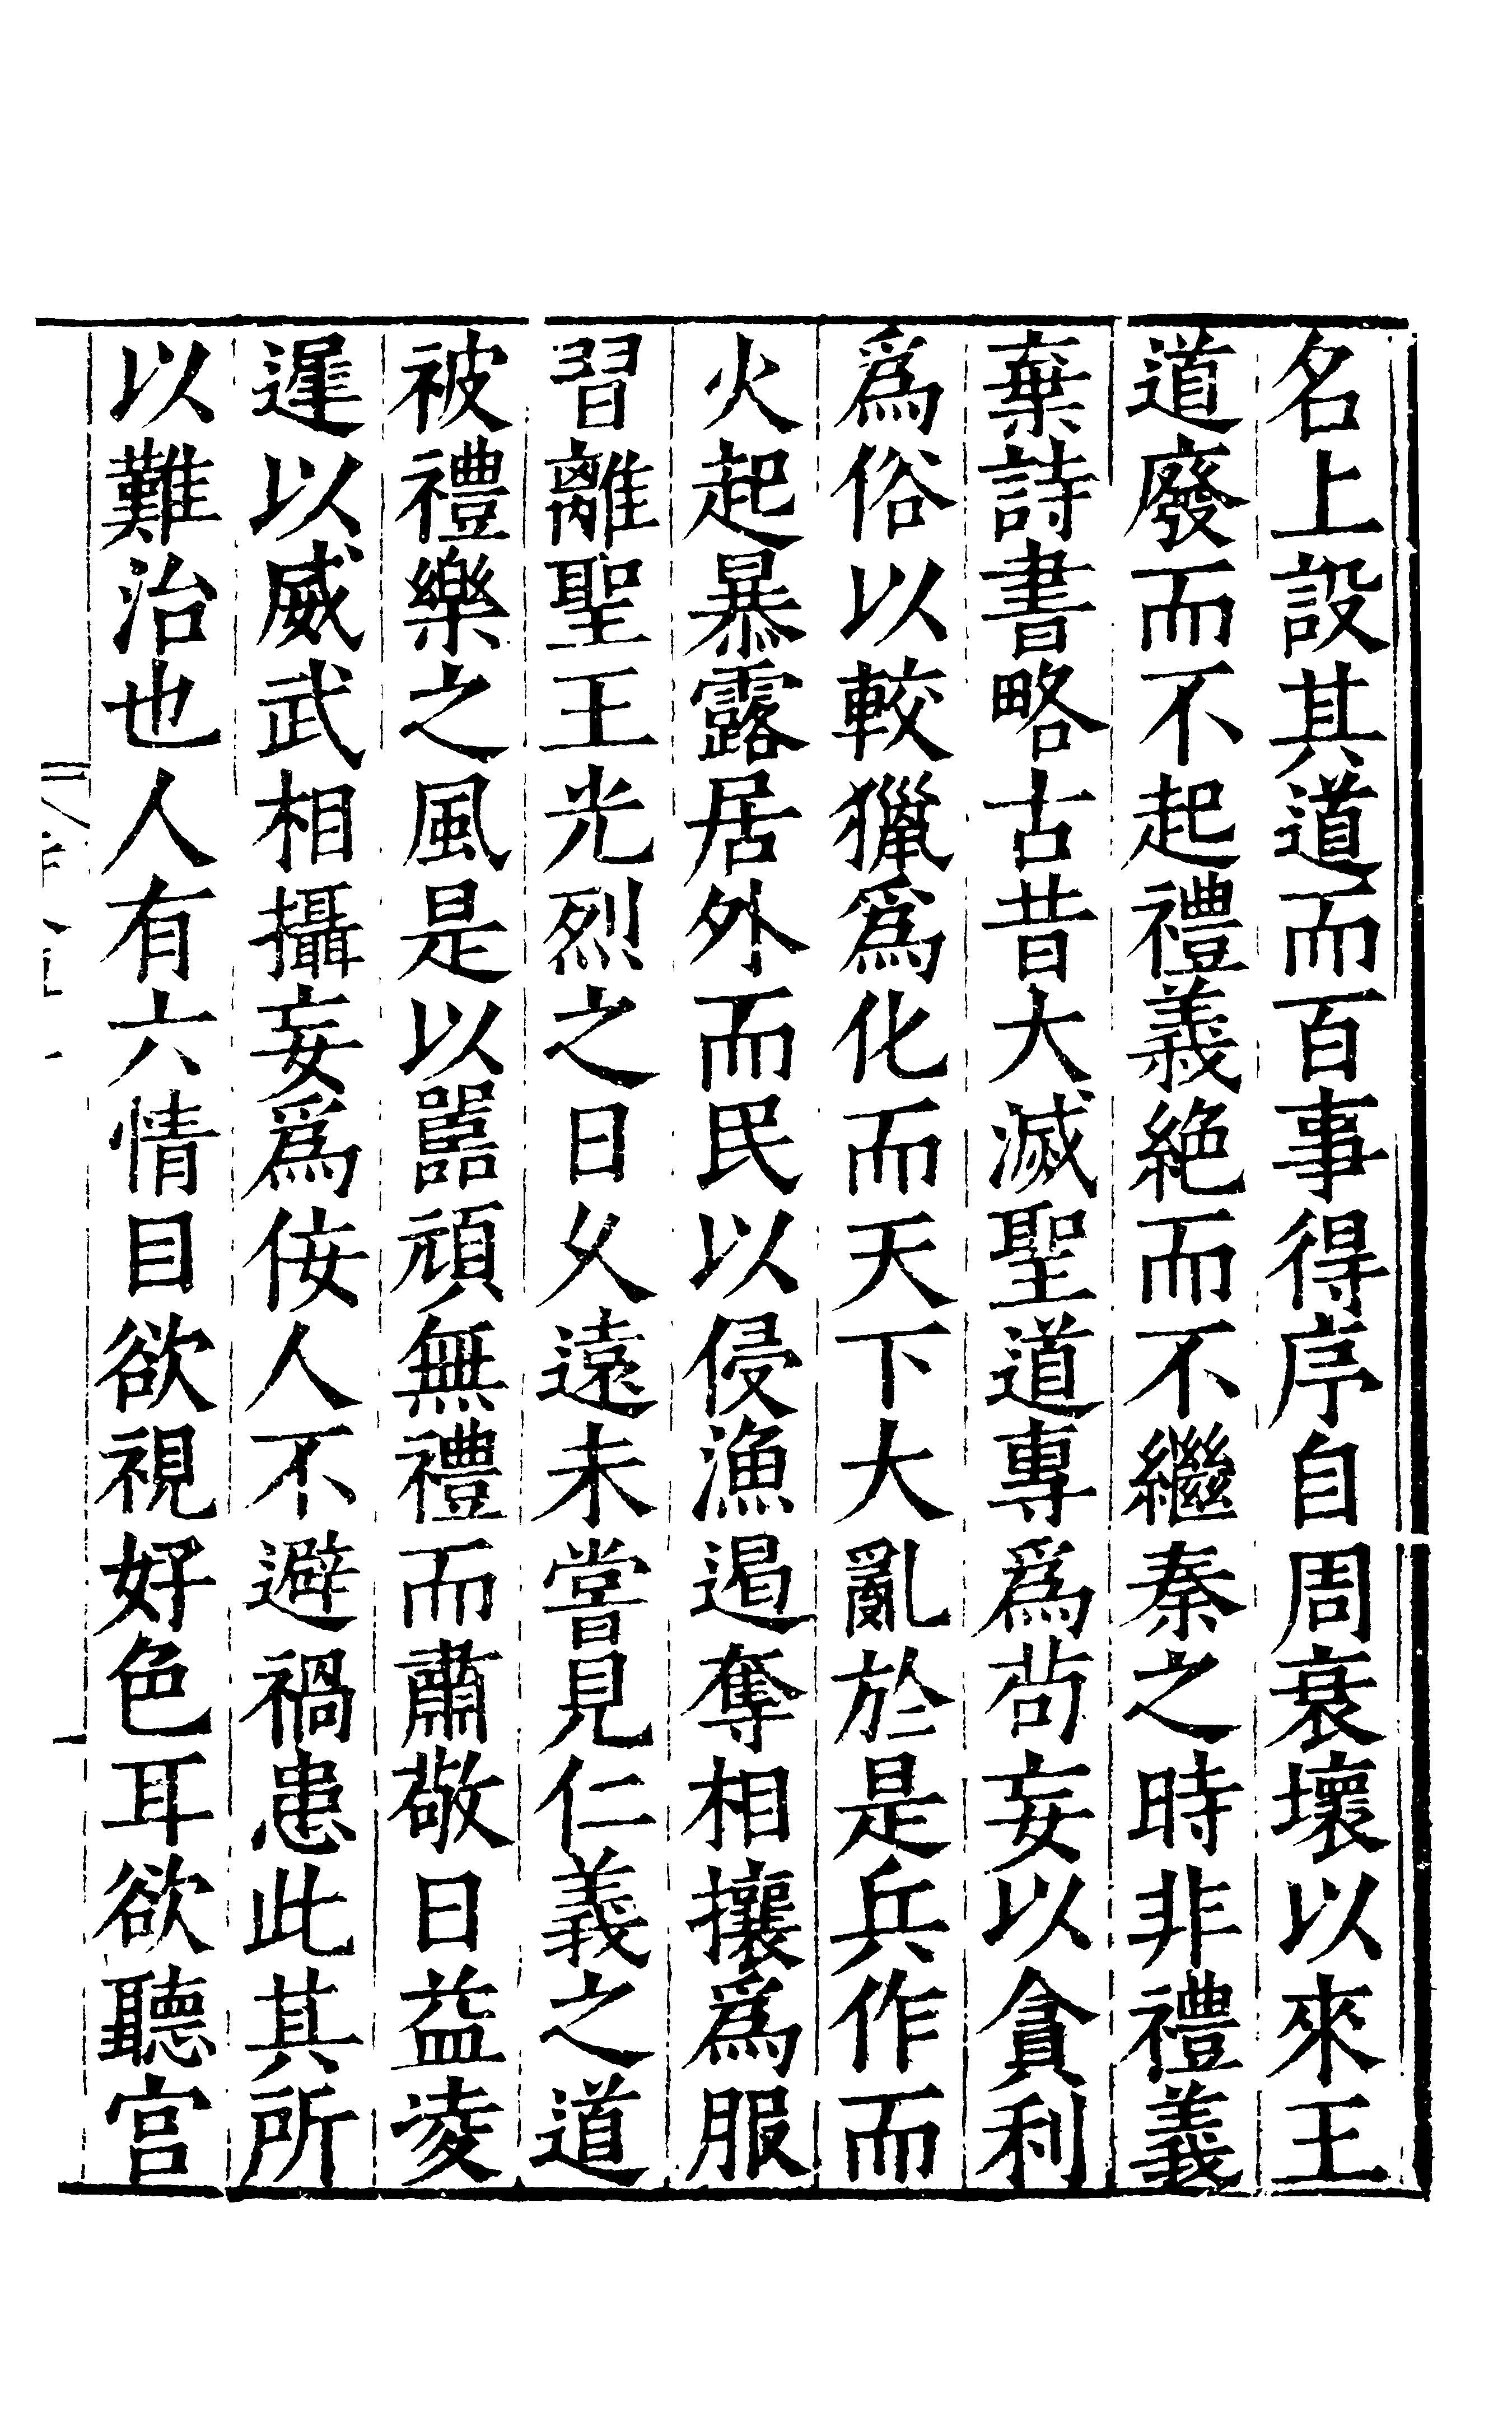 名上設其道而百事得序自周衰壞以來王
道廢而不起禮義絶而不繼秦之時非禮義
棄詩書略古昔大滅聖道專爲茍妄以貪利
爲俗以較獵爲化而天下大亂於是兵作而
火起暴露居外而民以侵漁遏奪相攘爲服
習離聖王光烈之日乆遠未嘗見仁義之道
被禮樂之風是以嚚頑無禮而肅敬日益凌
遲以威武相攝妄爲佞人不避禍患此其所
以難治也人有六情目欲視好色耳欲聽宫